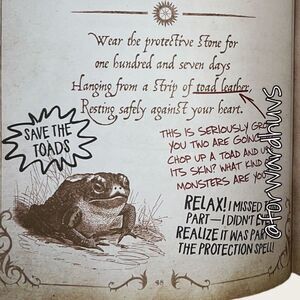 Wear the protective stone for
one hundred and seven days
Hanging from a strip of toad leather,
Resting safely against your heart.
SAVE THE
TOADS
THIS IS SERIOUSLY
YOU TWO ARE GOING
CHOP UP A TOAD AND
ITS SKIN? WHAT KIND
MONSTERS ARE
RELAX! I MISSED
PART—I DIDN'T
REALIZE IT WAS PART
THE PROTECTION SPELL!
98